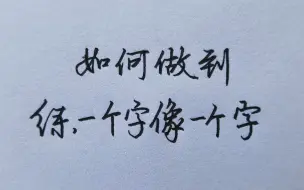 如何做到
练,一个字像一个字